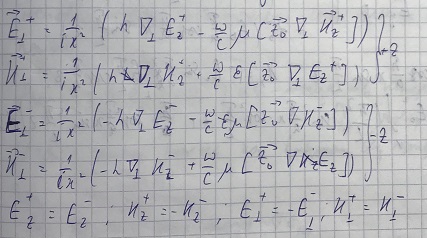 E⃗⊥⁺ = 1/(iϰ²) (h ∇⊥ E_z⁺ − ω/c μ [z⃗₀ ∇⊥ H_z⁺]) } +z
H⃗⊥⁺ = 1/(iϰ²) (h ∇⊥ H_z⁺ + ω/c ε [z⃗₀ ∇⊥ E_z⁺])
E⃗⊥⁻ = 1/(iϰ²) (−h ∇⊥ E_z⁻ − ω/c μ [z⃗₀ ∇ H_z⁻]) } −z
H⃗⊥⁻ = 1/(iϰ²) (−h ∇⊥ H_z⁻ + ω/c μ [z⃗₀ ∇ E_z])
E_z⁺ = E_z⁻ ; H_z⁺ = −H_z⁻ ; E⊥⁺ = −E⊥⁻ ; H⊥⁺ = H⊥⁻